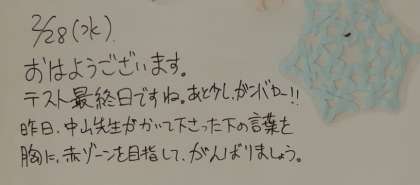 2/28(水)
おはようございます。
テスト最終日ですね。あと少し、ガンバロー!!
昨日、中山先生がかいて下さった下の言葉を
胸に、赤ゾーンを目指して、がんばりましょう。